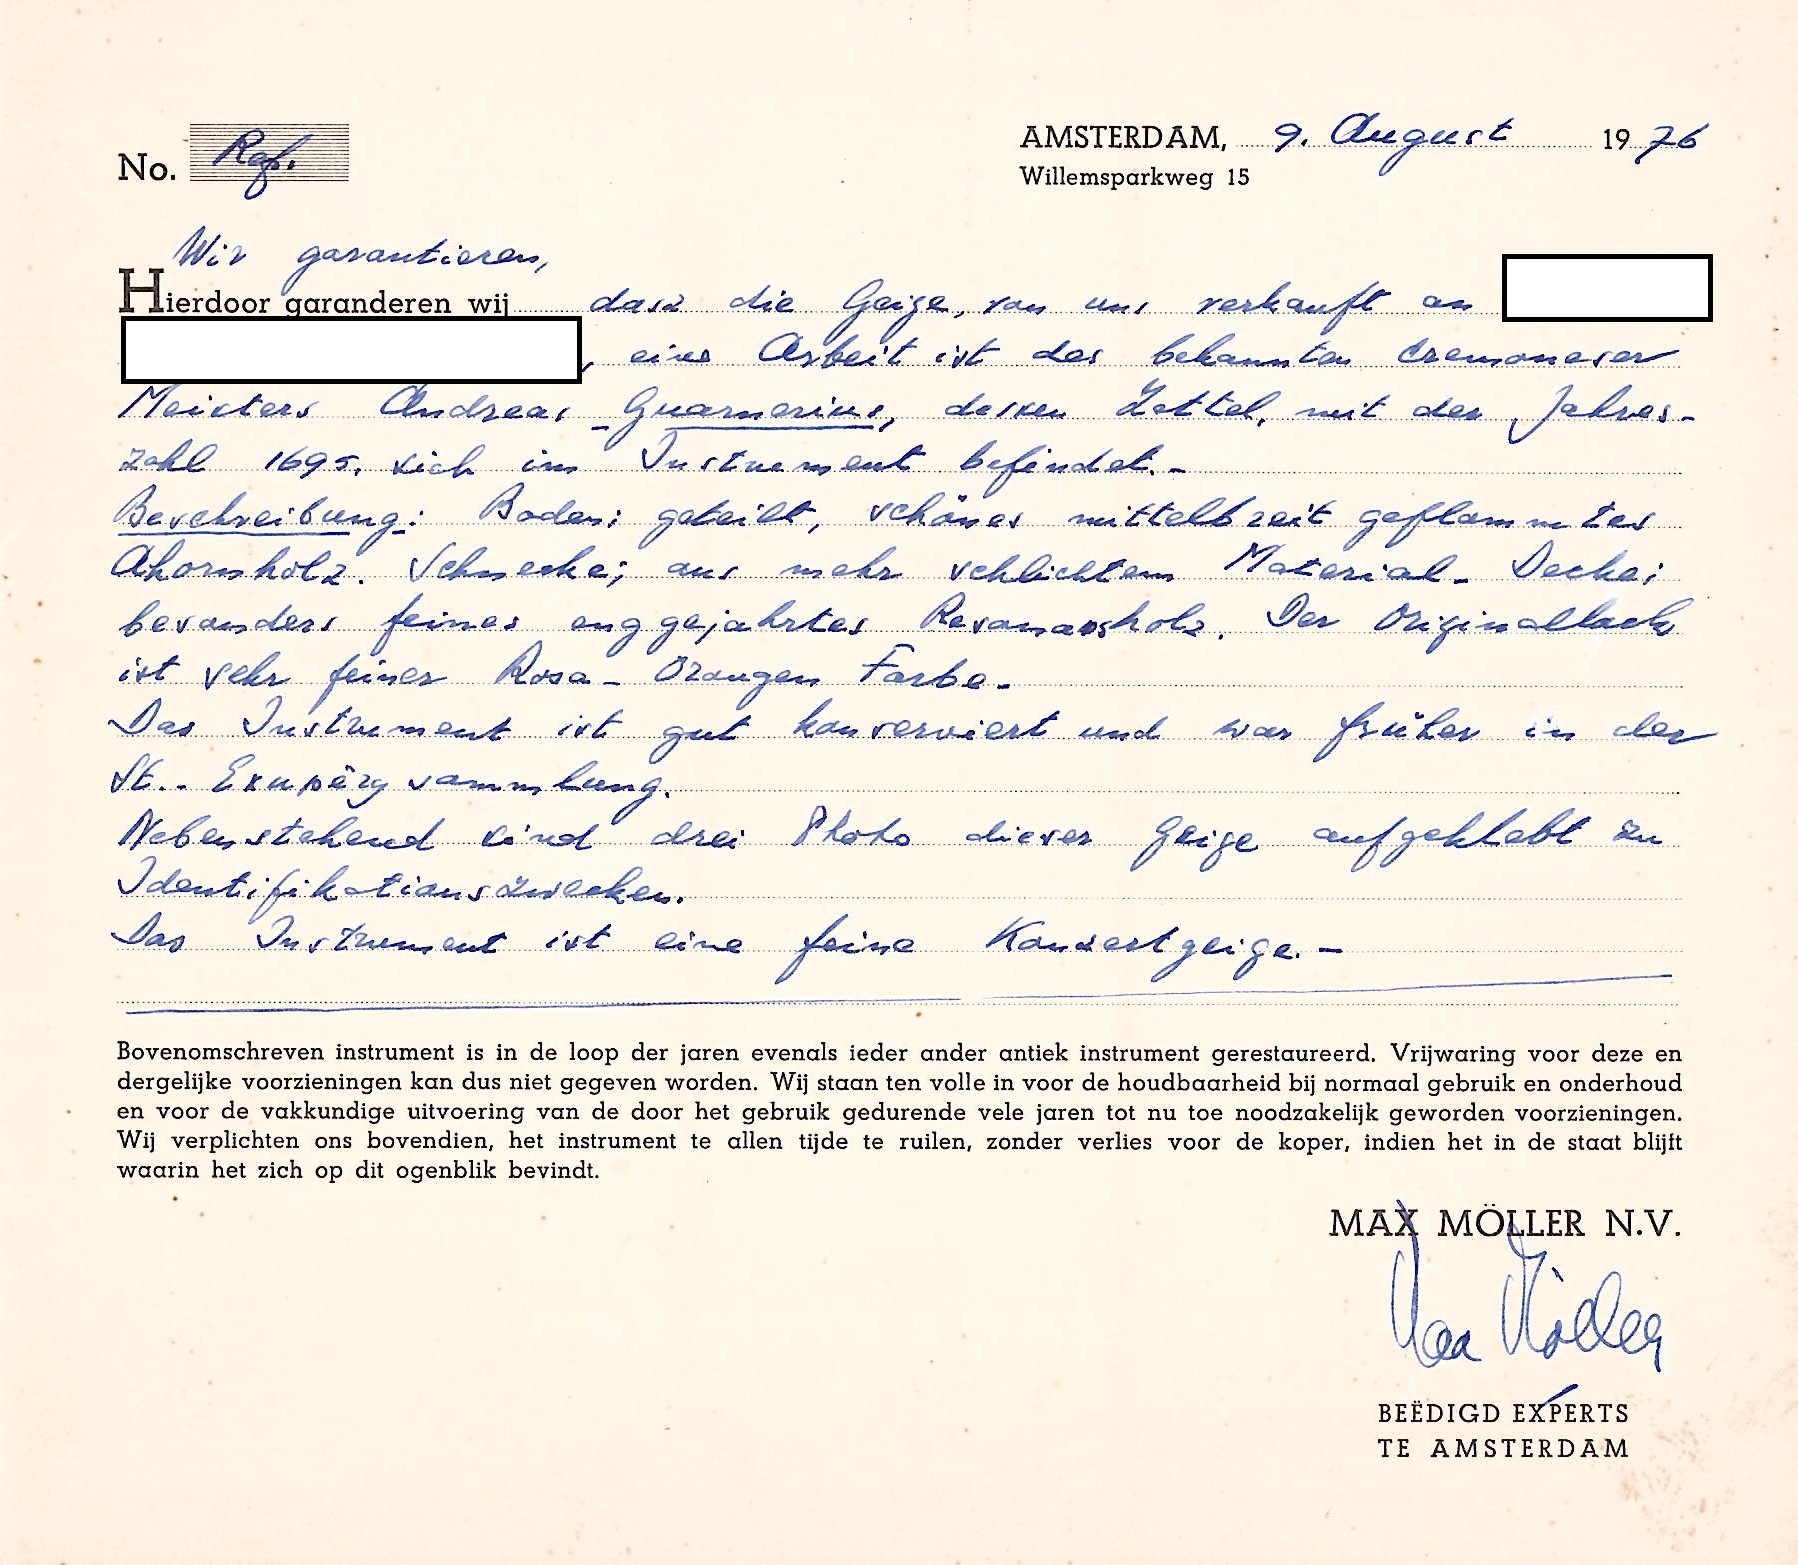 No. Rqf.
AMSTERDAM, 9. August 1976
Willemsparkweg 15
Wir garantieren,
Hierdoor garanderen wij dasz die Geige, von uns verkauft an
, eine Arbeit ist des bekannten Cremoneser
Meisters Andreas Guarnerius, dessen Zettel, mit der Jahres-
zahl 1695, sich im Instrument befindet.-
Beschreibung: Boden; geteilt, schönes mittelbreit geflammtes
Ahornholz. Schnecke; aus mehr schlichtem Material- Decke;
besonders feines enggejahrtes Resonanzholz. Der Originallack
ist sehr feiner Rosa- Orangen Farbe-
Das Instrument ist gut konserviert und war früher in der
St.- Exupèry sammlung.
Nebenstehend sind drei Photo dieser Geige aufgeklebt zu
Identifikationszwecken.
Das Instrument ist eine feine Konzertgeige.-
Bovenomschreven instrument is in de loop der jaren evenals ieder ander antiek instrument gerestaureerd. Vrijwaring voor deze en
dergelijke voorzieningen kan dus niet gegeven worden. Wij staan ten volle in voor de houdbaarheid bij normaal gebruik en onderhoud
en voor de vakkundige uitvoering van de door het gebruik gedurende vele jaren tot nu toe noodzakelijk geworden voorzieningen.
Wij verplichten ons bovendien, het instrument te allen tijde te ruilen, zonder verlies voor de koper, indien het in de staat blijft
waarin het zich op dit ogenblik bevindt.
MAX MÖLLER N.V.
Max Möller
BEËDIGD EXPERTS
TE AMSTERDAM